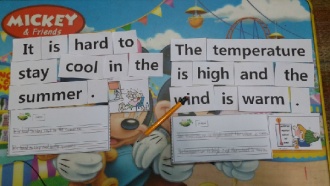 MICKEY
& Friends
It is hard to
stay cool in the
summer .
The temperature
is high and the
wind is warm .